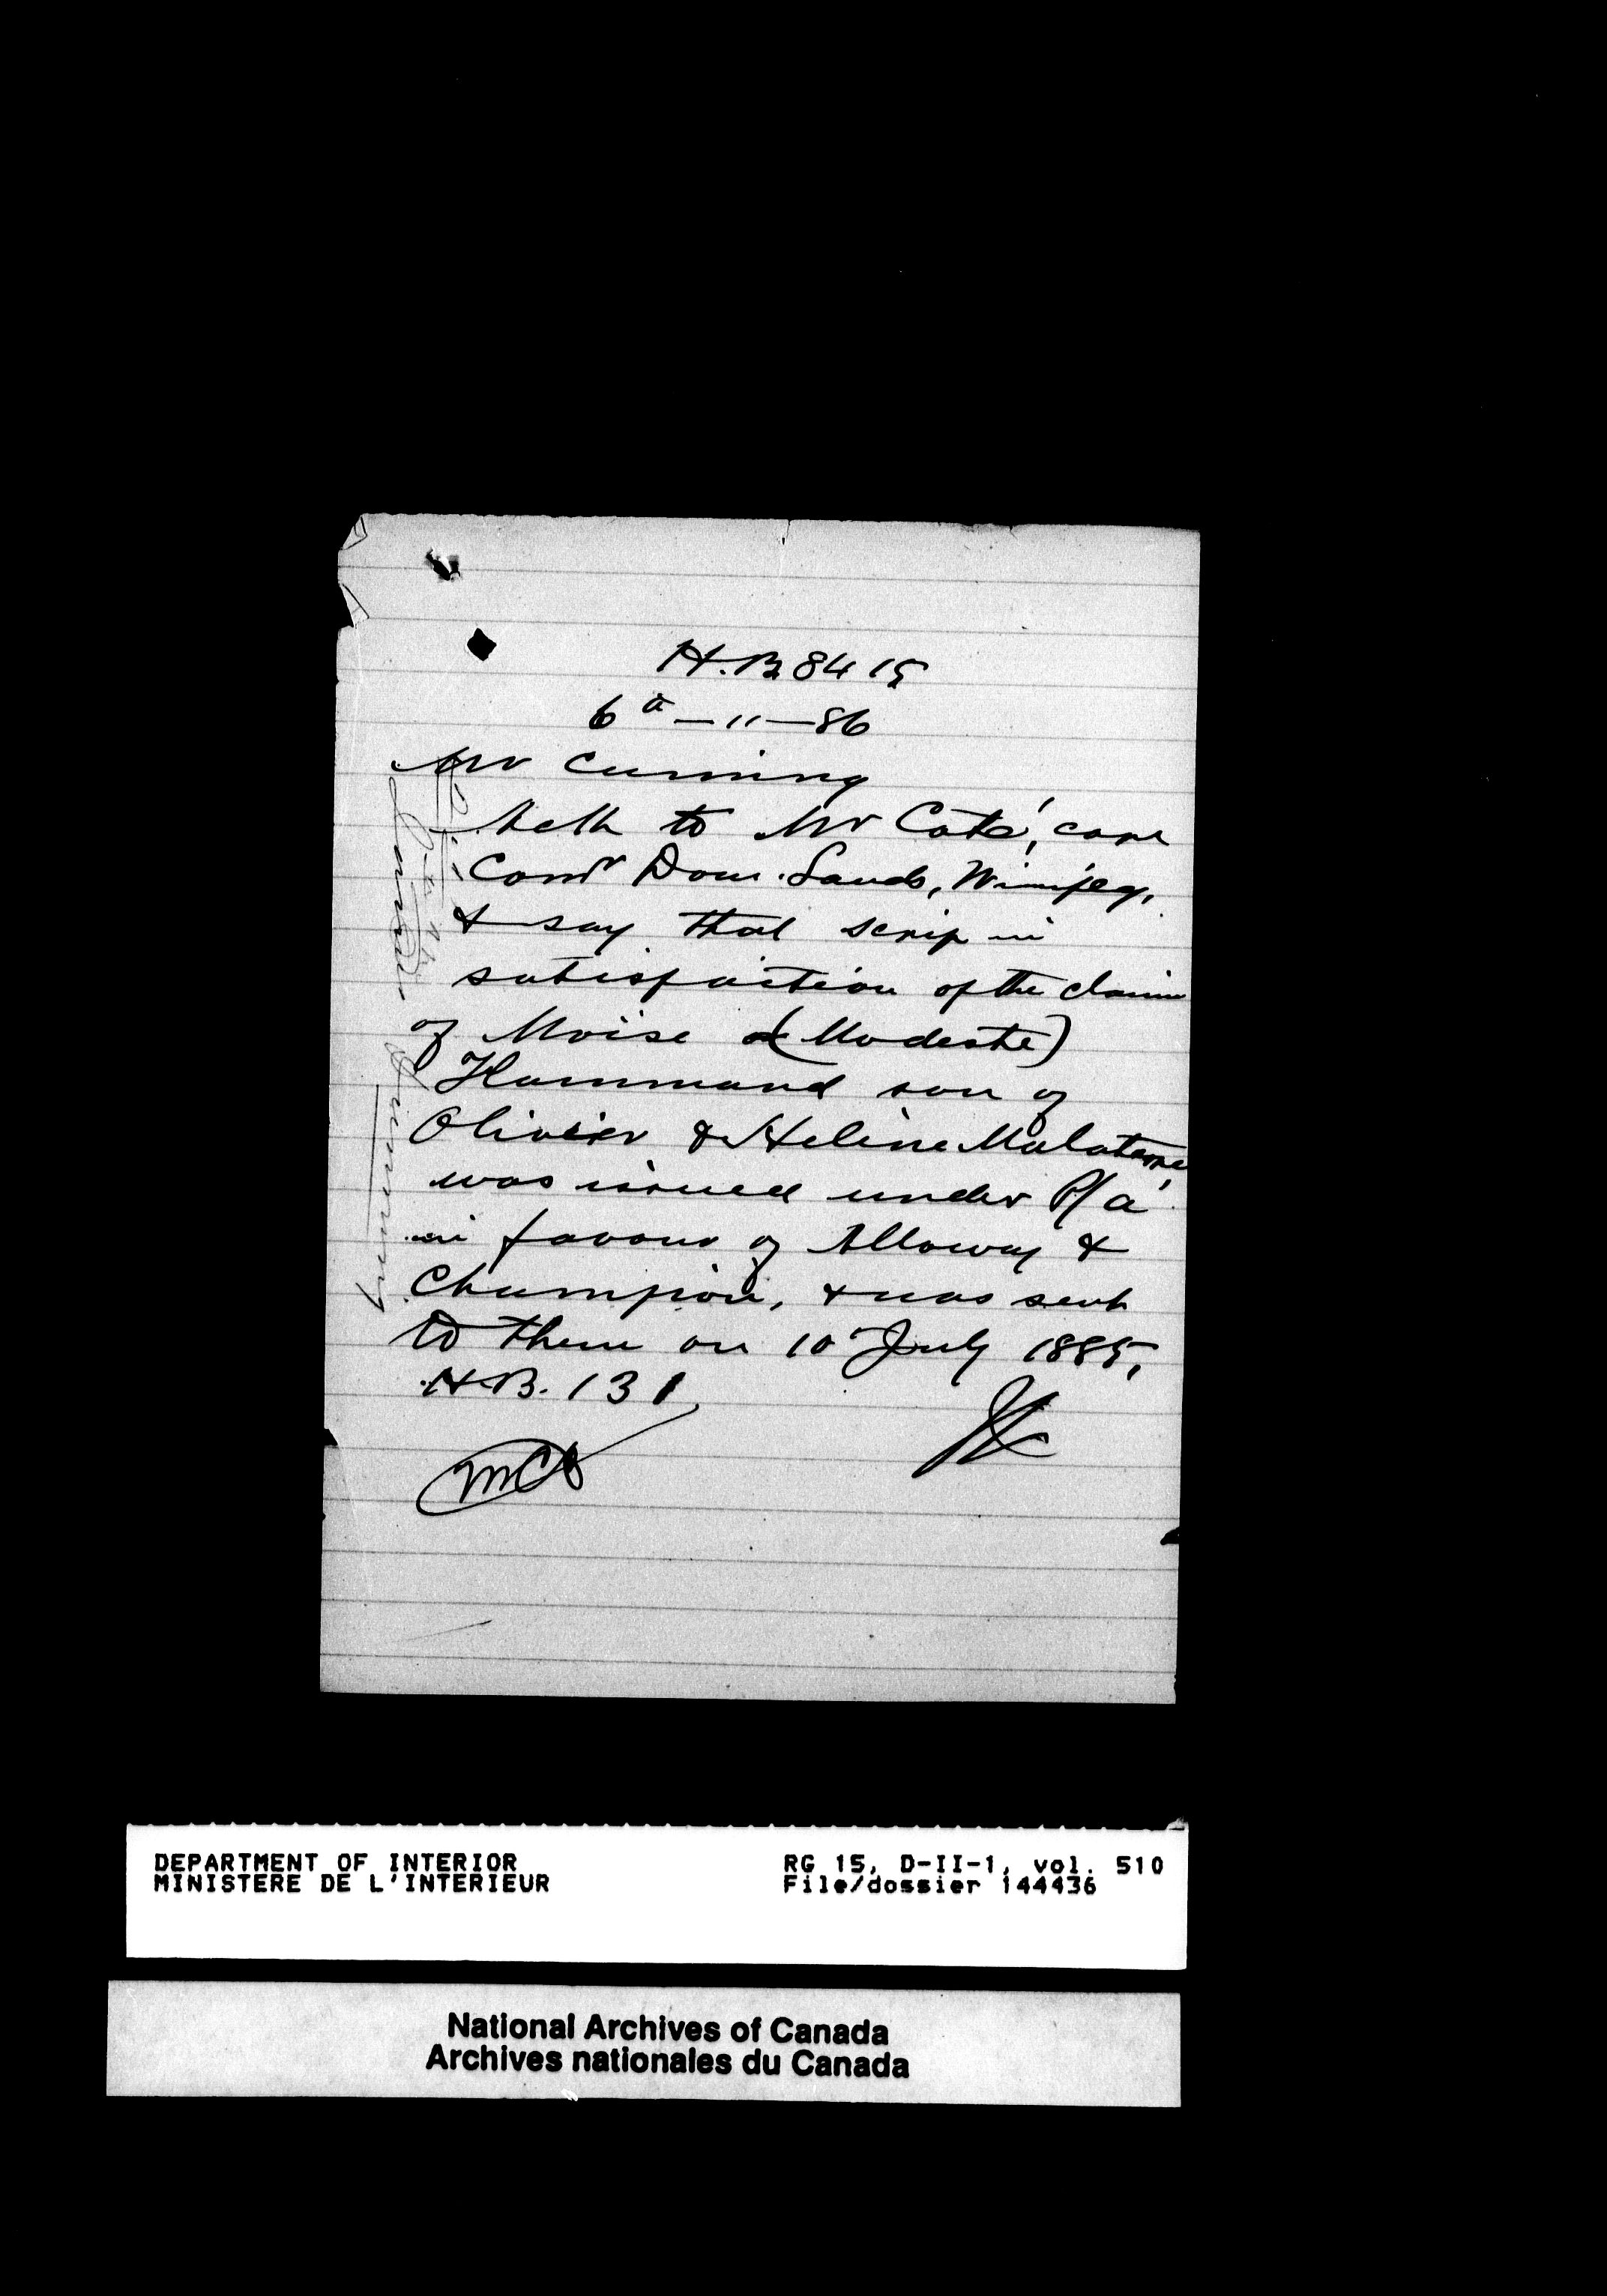 H.B. 8415
6 — 11 — 86
Mr Cumming
to Mr Coté, care
Comr Dom. Lands, Winnipeg,
& say that scrip in
satisfaction of the claim
of Moïse or (Modeste)
Hammand son of
Olivier & Helène Malaterre
was issued under P/a
in favour of Alloway &
Champion, & was sent
to them on 10 July 1885,
H.B. 131
DEPARTMENT OF INTERIOR
MINISTERE DE L'INTERIEUR
RG 15, D-II-1, vol. 510
File/dossier 144436
National Archives of Canada
Archives nationales du Canada